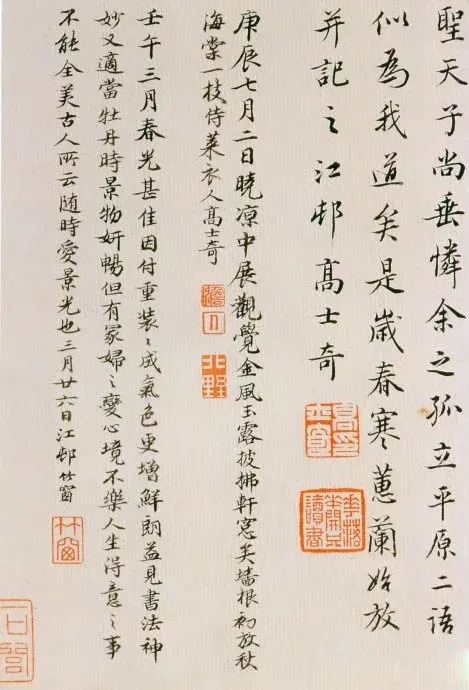 聖天子尚垂憐余之孤立平原二語
似為我道矣是歲春寒蕙蘭始放
并記之江邨高士奇
庚辰七月二日曉涼中展觀覺金風玉露披拂軒窓矣墻根初放秋
海棠一枝侍萊衣人高士奇
澹人
北墅
壬午三月春光甚佳因付重裝〻成氣色更增鮮朗益見書法神
妙又適當牡丹時景物妍暢但有冢婦之變心境不樂人生得意之事
不能全美古人所云随時愛景光也三月廿六日江邨竹窗
竹窗